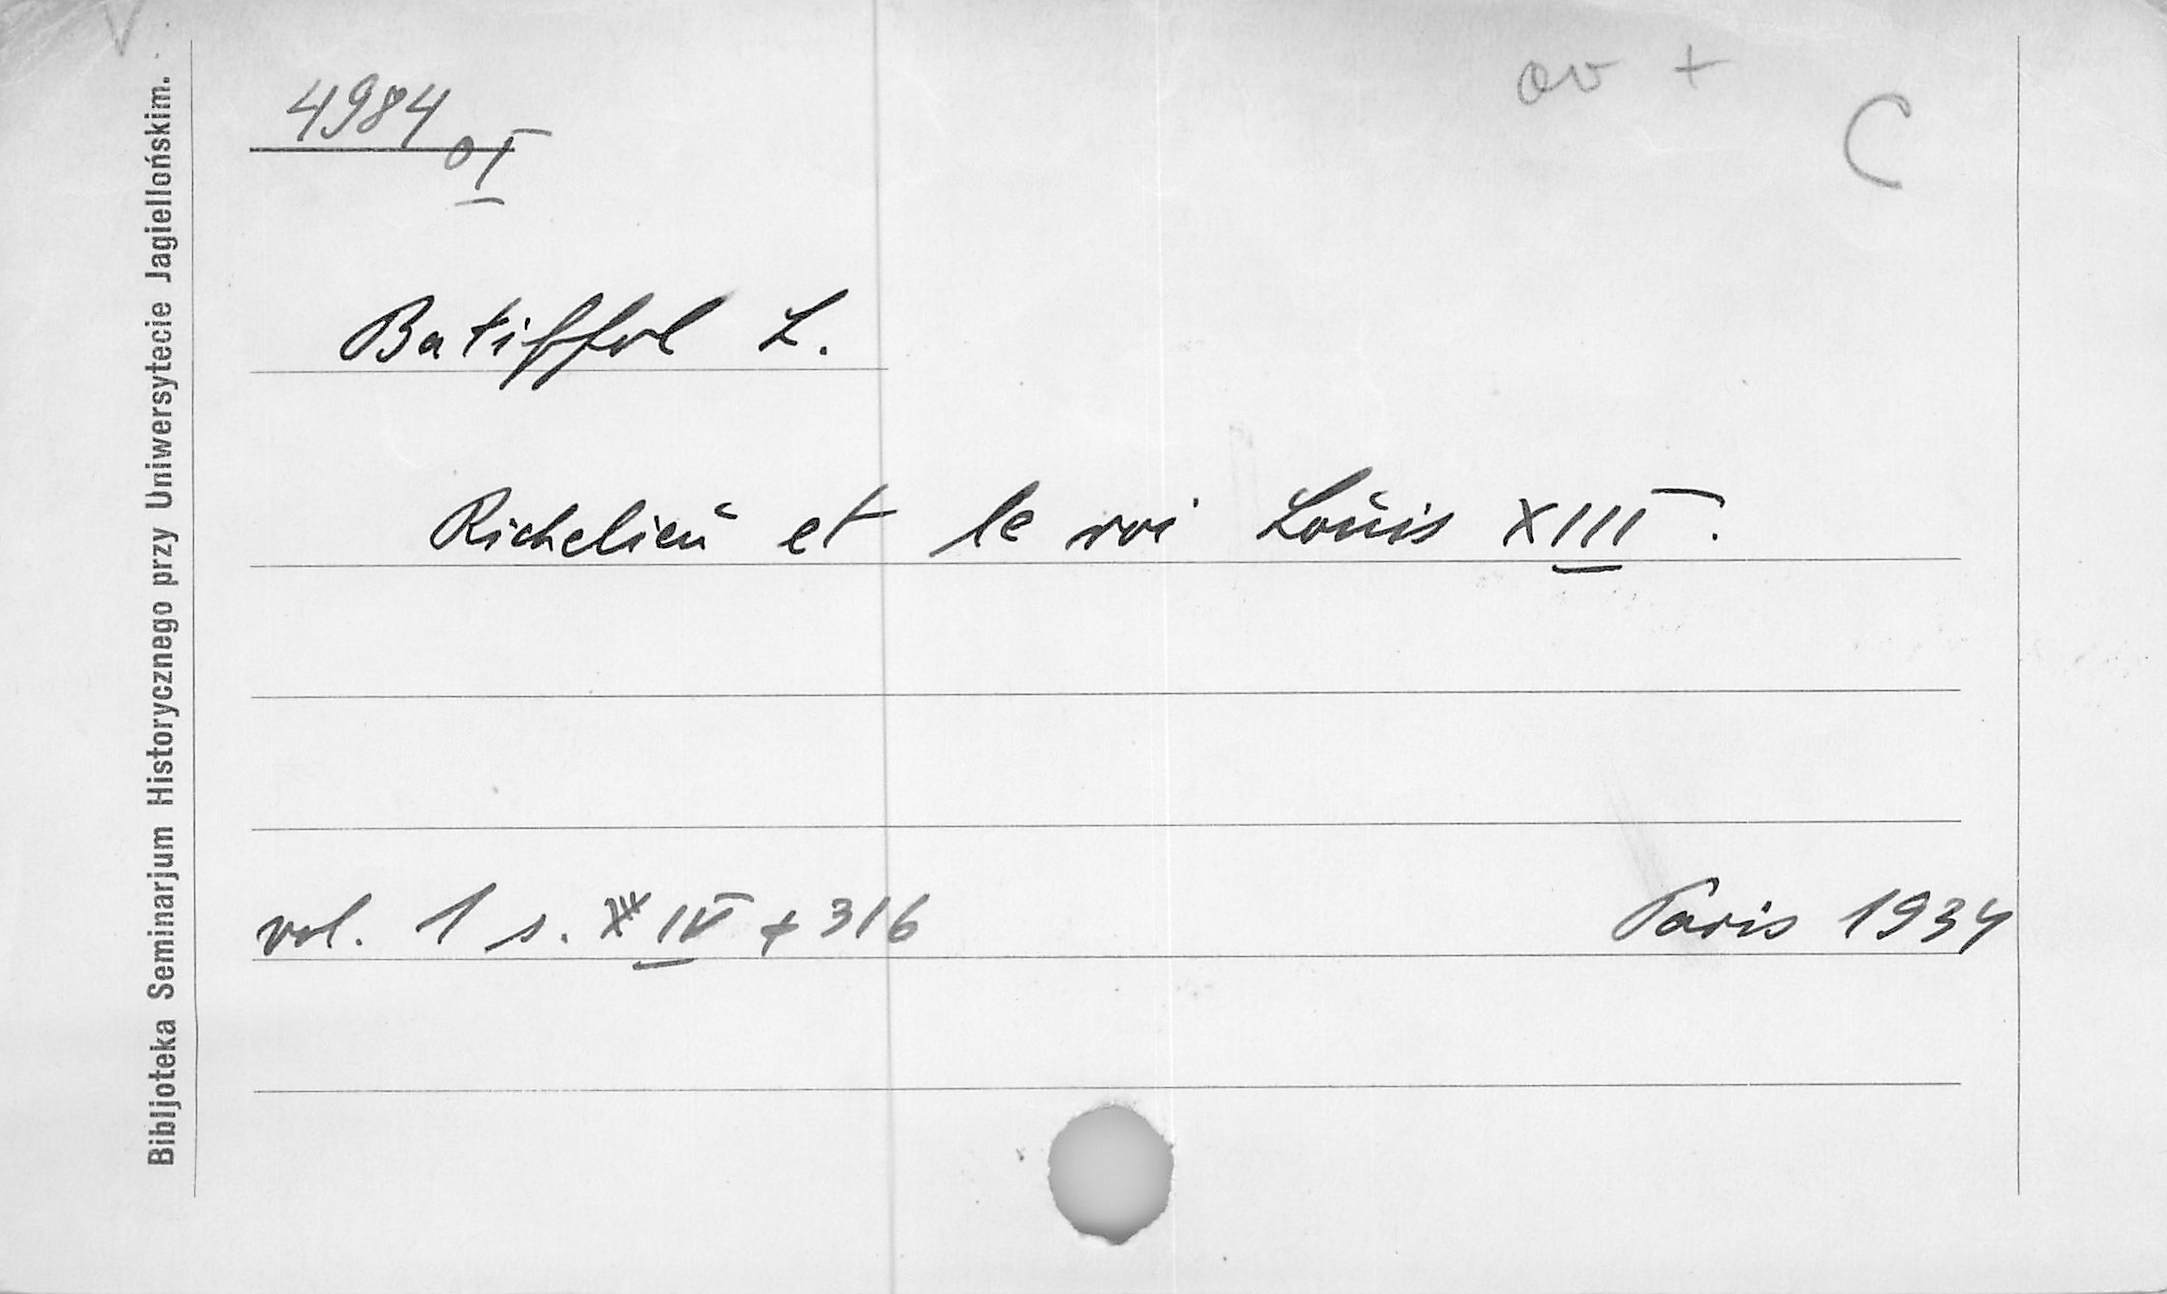 V
ov + C
4984 OI
Batiffol L.
Richelieu et le roi Louis XIII.
vol. 1 s. IV + 316 Paris 1934
Bibljoteka Seminarjum Historycznego przy Uniwersytecie Jagiellońskim.